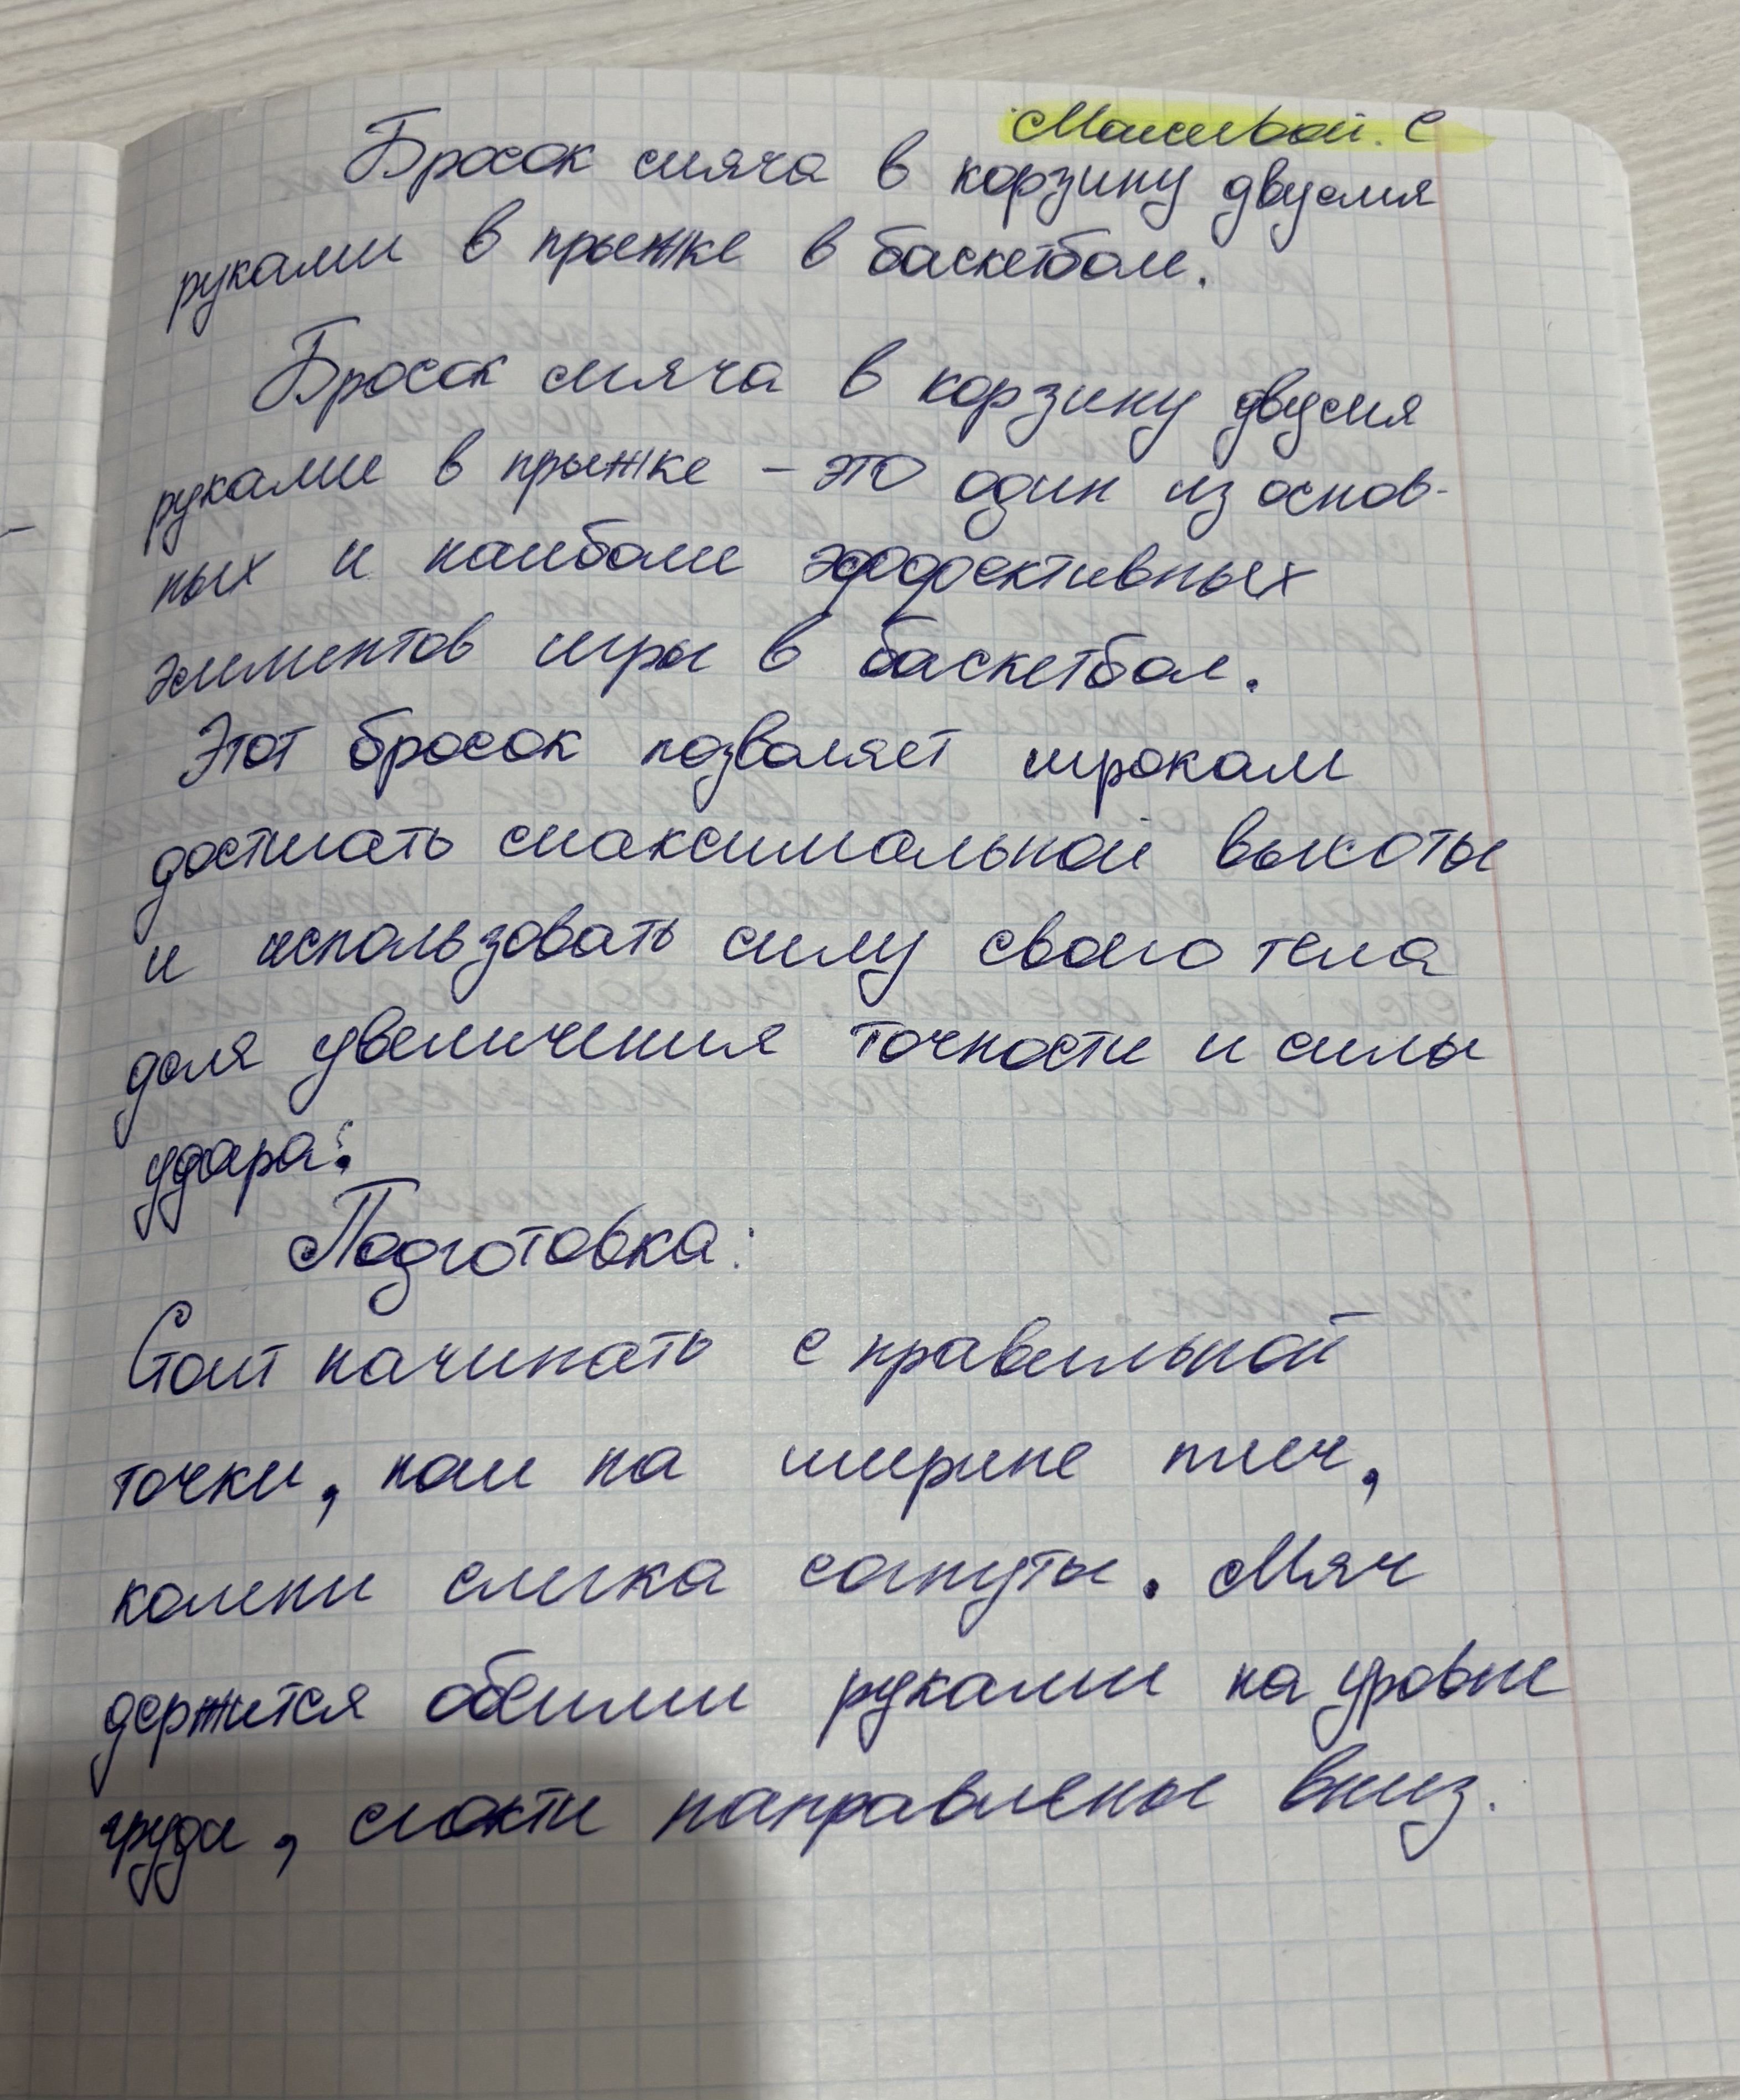 Бросок мяча в корзину двумя
руками в прыжке в баскетболе.
Бросок мяча в корзину двумя
руками в прыжке – это один из основ-
ных и наиболее эффективных
элементов игры в баскетбол.
Этот бросок позволяет игрокам
достигать максимальной высоты
и использовать силу своего тела
для увеличения точности и силы
удара:
Подготовка:
Стоит начинать с правильной
точки, ноги на ширине плеч,
колени слегка согнуты. Мяч
держится обеими руками на уровне
груди, локти направлены вниз.